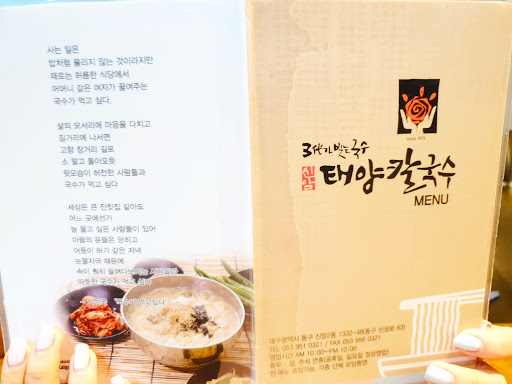 사는 일은
밥처럼 물리지 않는 것이라지만
때로는 허름한 식당에서
어머니 같은 여자가 끓여주는
국수가 먹고 싶다.
삶의 모서리에 마음을 다치고
길거리에 나서면
고향 장거리 길로
소 팔고 돌아오듯
뒷모습이 허전한 사람들과
국수가 먹고 싶다
세상은 큰 잔칫집 같아도
어느 곳에선가
늘 울고 싶은 사람들이 있어
마을의 문들은 닫히고
어둠이 허기 같은 저녁
눈물자국 때문에
속이 훤히 들여다보이는 사람들과
따뜻한 국수가 먹고 싶다
3대가 빚는 국수
신암
태양칼국수
MENU
대구광역시 동구 신암2동 1332-48(동구 신성로 63)
TEL 053 951 0321 / FAX 053 956 0321
영업시간 AM 10:00~PM 10:00
휴무 : 설, 추석 연휴(공휴일, 일요일 정상영업)
전 메뉴 포장가능, 각종 단체 모임환영